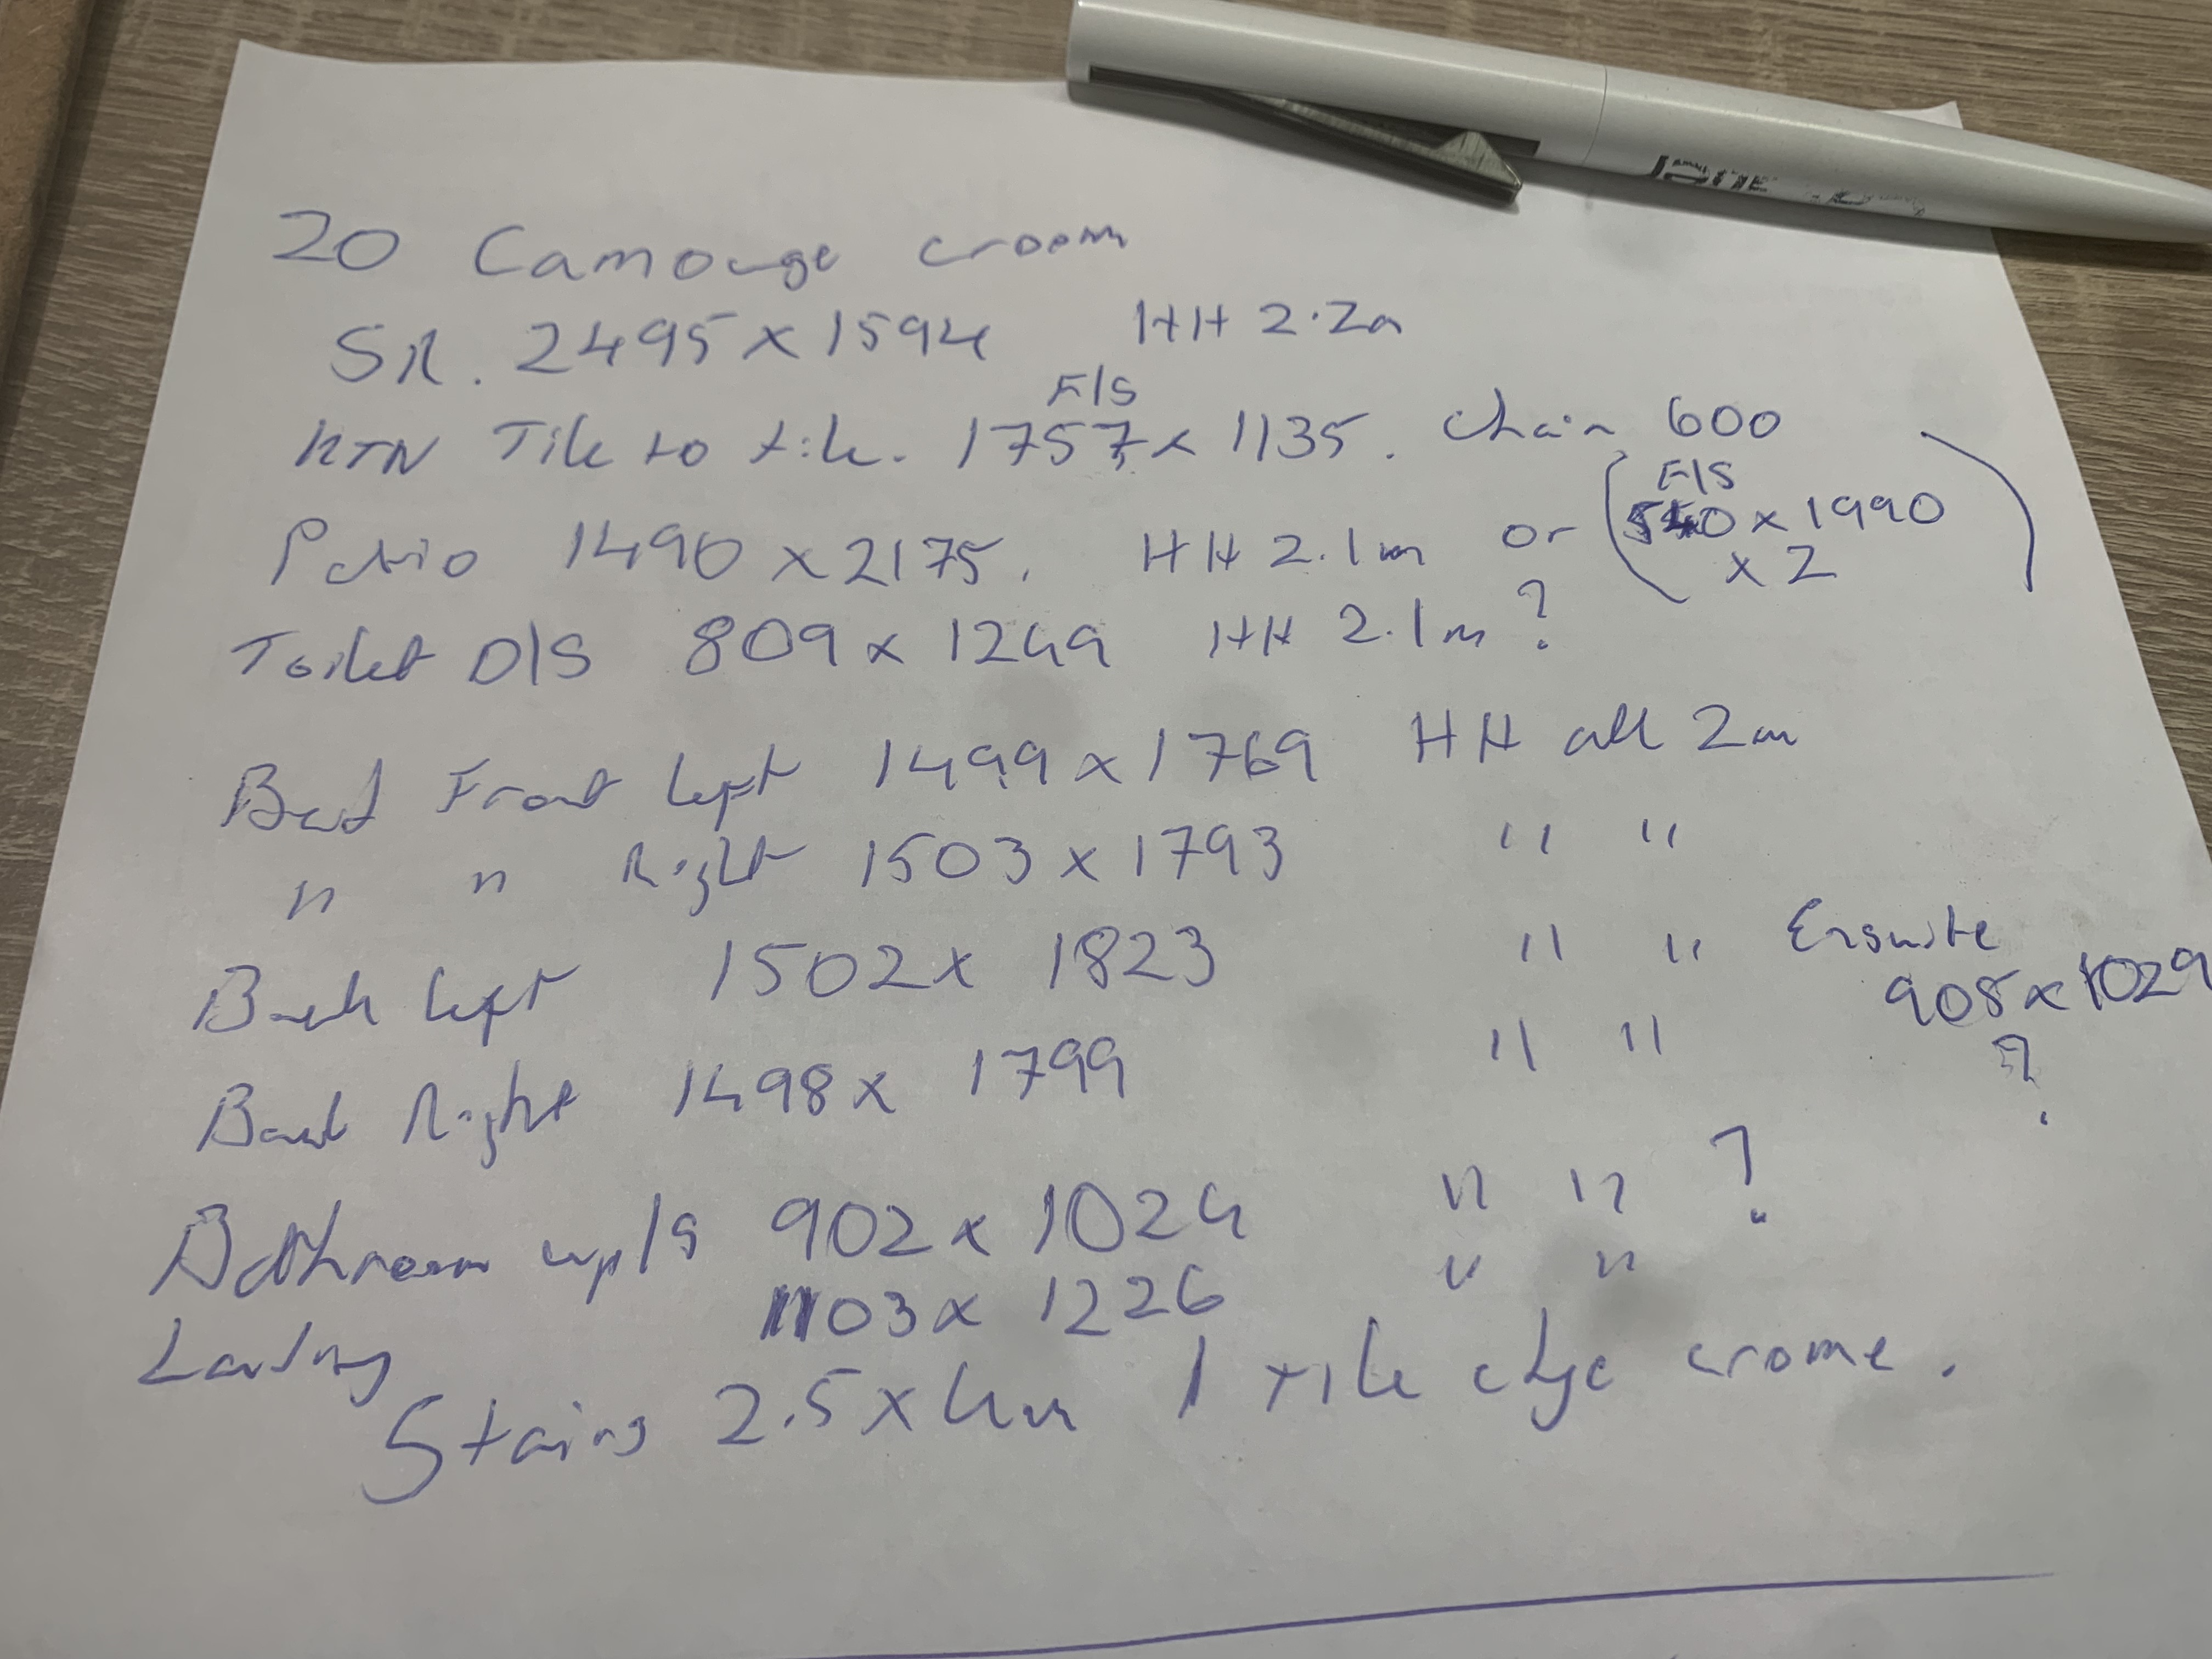 20 Camouge croom
SR. 2495 x 1594 HH 2.2m
F/S
KTN Tile to tile. 1757 x 1135. chain 600
F/S
Patio 1490 x 2175. HH 2.1m or (540 x 1990
x 2)
Toilet D/S 809 x 1249 HH 2.1m ?
Bed Front left 1499 x 1769 HH all 2m
" " Right 1503 x 1793 " "
Back left 1502 x 1823 " " Ensuite
908 x 1029
?
Back Right 1498 x 1799 " "
Bathroom up/s 902 x 1024 " " ?
Landing 1103 x 1226 " "
Stairs 2.5 x 4m 1 tile edge crome.